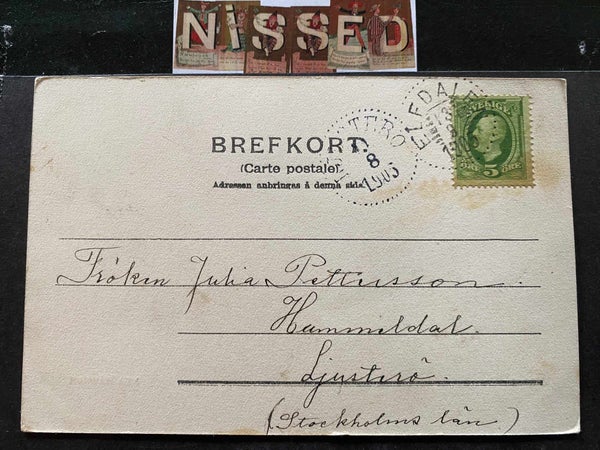 NiSSED
BREFKORT.
(Carte postale)
Adressen anbringas å denna sida.
8
1903
SVERIGE
5
ÖRE
Fröken Julia Pettersson.
Hummeldal.
Ljusterö.
(Stockholms län)